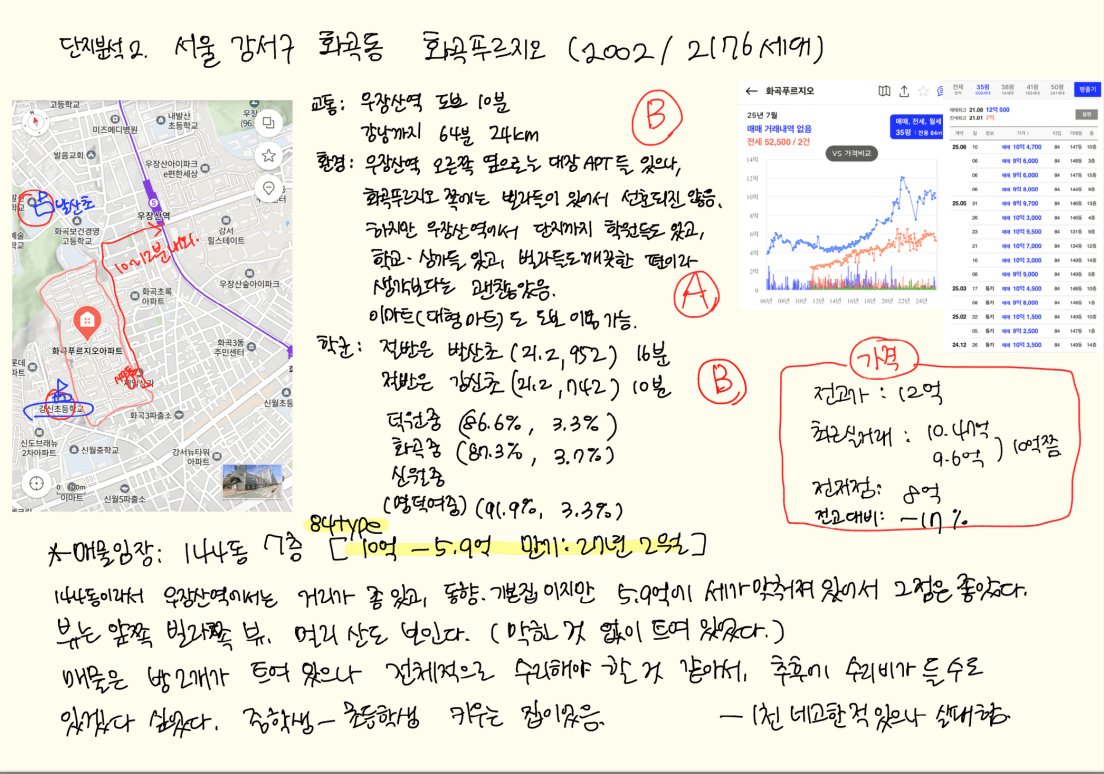 단지분석 2. 서울 강서구 화곡동 화곡푸르지오 (2002 / 2176세대)
교통: 우장산역 도보 10분
강남까지 64분 24km
B
환경: 우장산역 오른쪽 옆으로는 대장APT들 있으나,
화곡푸르지오 쪽에는 빌라들이 있어서 선호되진 않음.
하지만 우장산역에서 단지까지 학원들도 있고,
학교·상가들 있고, 빌라들도 깨끗한 편이라
생각보다는 괜찮았음.
이마트(대형마트)도 도보 이용 가능.
A
학군: 절반은 발산초 (21.2, 952) 16분
절반은 강신초 (21.2, 742) 10분
B
덕원중 (86.6%, 3.3%)
화곡중 (87.3%, 3.7%)
신월중
(명덕여중) (91.9%, 3.3%)
고등학교
미즈메디병원
내발산초등학교
발음교회
우장산아이파크
e편한세상
우장산역
화곡보건경영고등학교
강서힐스테이트
10에 12분 내외.
우장산숲아이파크
화곡초록아파트
화곡푸르지오아파트
화곡3동주민센터
강신초등학교
화곡3파출소
신월초등
신도브래뉴2차아파트
신월중학교
강서뉴타워아파트
신월5파출소
이마트
화곡푸르지오
25년 7월
매매 거래내역 없음
전세 52,500 / 2건
매매, 전세, 월세
35평 전용 84m
VS 가격비교
14억
12억
8억
6억
4억
2억
0
06년 08년 10년 12년 14년 16년 18년 20년 22년 24년
전체 35평 38평 41평 50평 평물기
매매최고 21.08 12억 500
전세최고 21.01 7억
설정
계약 일 정보 가격 타입 거래동 층
25.06 10 매매 10억 4,700 84 147동 10층
06 매매 9억 6,000 84 148동 3층
06 매매 9억 6,000 84 147동 15층
06 매매 9억 8,000 84 144동 6층
25.05 31 매매 9억 9,700 84 146동 13층
26 매매 10억 3,000 84 146동 4층
23 매매 10억 9,500 84 131동 9층
21 매매 10억 7,000 84 134동 12층
16 매매 10억 3,000 84 149동 14층
06 매매 9억 9,000 84 149동 5층
25.03 17 등기 매매 10억 4,500 84 147동 10층
08 등기 매매 9억 8,000 84 148동 1층
25.02 22 등기 매매 10억 1,500 84 149동 10층
05 등기 매매 9억 2,500 84 147동 1층
24.12 26 등기 매매 10억 3,500 84 149동 14층
가격
전고가 : 12억
최근실거래 : 10.47억
9.6억 ) 10억쯤
전저점: 8억
전고대비: -17%
84type
*-매물임장: 144동 7층 [10억 - 5.9억 만기: 27년 2월]
144동이라서 우장산역에서는 거리가 좀 있고, 동향·기본집이지만 5.9억에 세가 맞춰져 있어서 그점은 좋았다.
뷰는 앞쪽 빌라쪽 뷰. 멀리 산도 보인다. (막힌 것 없이 트여 있었다.)
매물은 방2개가 트여 있으나 전체적으로 수리해야 할 것 같아서, 추후에 수리비가 들 수도
있겠다 싶었다. 중학생 - 초등학생 키우는 집이었음. - 1천 네고한적 있으나 실패함.